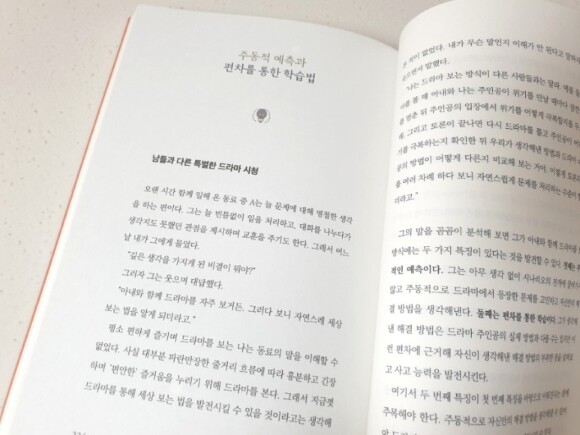 주동적 예측과
편차를 통한 학습법
남들과 다른 특별한 드라마 시청
오랜 시간 함께 일해 온 동료 중 A는 늘 문제에 대해 명철한 생각
을 하는 편이다. 그는 늘 빈틈없이 일을 처리하고, 대화를 나누다가
생각지도 못했던 관점을 제시하며 교훈을 주기도 한다. 그래서 어느
날 내가 그에게 물었다.
"깊은 생각을 가지게 된 비결이 뭐야?"
그러자 그는 웃으며 대답했다.
"아내와 함께 드라마를 자주 보거든. 그러다 보니 자연스레 세상
보는 법을 알게 되더라고."
평소 편하게 즐기며 드라마를 보는 나는 동료의 말을 이해할 수
없었다. 사실 대부분 파란만장한 줄거리 흐름에 따라 흥분하고 긴장
하며 '편안한' 즐거움을 누리기 위해 드라마를 본다. 그래서 지금껏
드라마를 통해 세상 보는 법을 발전시킬 수 있을 것이라고는 생각해
적이 없었다. 내가 무슨 말인지 이해가 안 된다고 말하자
으면서 말했다.
"나는 드라마 보는 방식이 다른 사람들과는 달라.
를 볼 때 아내와 나는 주인공이 위기를 만날 때마다 잠깐
멈춘 뒤 주인공의 입장에서 위기를 어떻게 극복할지를
해. 그리고 토론이 끝나면 다시 드라마를 틀고 주인공이 어떻게
를 극복하는지 확인한 뒤 우리가 생각해낸 방법과 드라마
공의 방법이 어떻게 다른지 비교해 보는 거야. 이렇게
을 여러 차례 하다 보니 자연스럽게 문제를 처리하는 수준이
더라고."
그의 말을 곰곰이 분석해 보면 그가 아내와 함께 드라마
방식에는 두 가지 특징이 있다는 것을 발견할 수 있다. 첫째는
적인 예측이다. 그는 아무 생각 없이 시나리오의 전개에
않고 주동적으로 드라마에서 등장한 문제를 고민하고
결 방법을 생각해낸다. 둘째는 편차를 통한 학습이다. 그가
낸 해결 방법은 드라마 주인공의 실제 방법과 다를 수
런 편차에 근거해 자신이 생각해낸 해결 방법의
고 사고 능력을 발전시킨다.
여기서 두 번째 특징이 첫 번째 특징을 바탕으로
주목해야 한다. 주동적으로 자신만의 해결